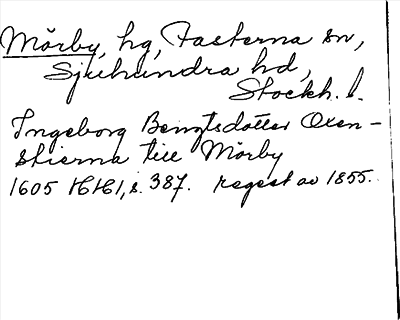 Mörby, hg, Fasterna sn,
Sjuhundra hd,
Stockh. l.
Ingeborg Bengtsdotter Oxen-
stierna till Mörby
1605 HH1, s. 387. regest av 1855.